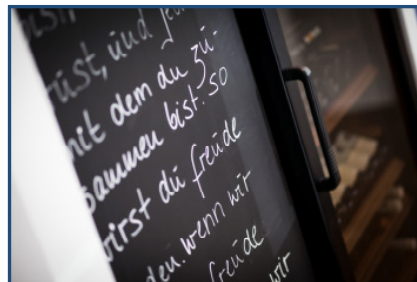 bist,
rüst, und
mit dem du zu-
sammen bist. so
wirst du freude
den. wenn wir
freude
wir